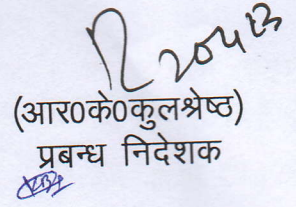 (आर0के0कुलश्रेष्ठ)
प्रबन्ध निदेशक